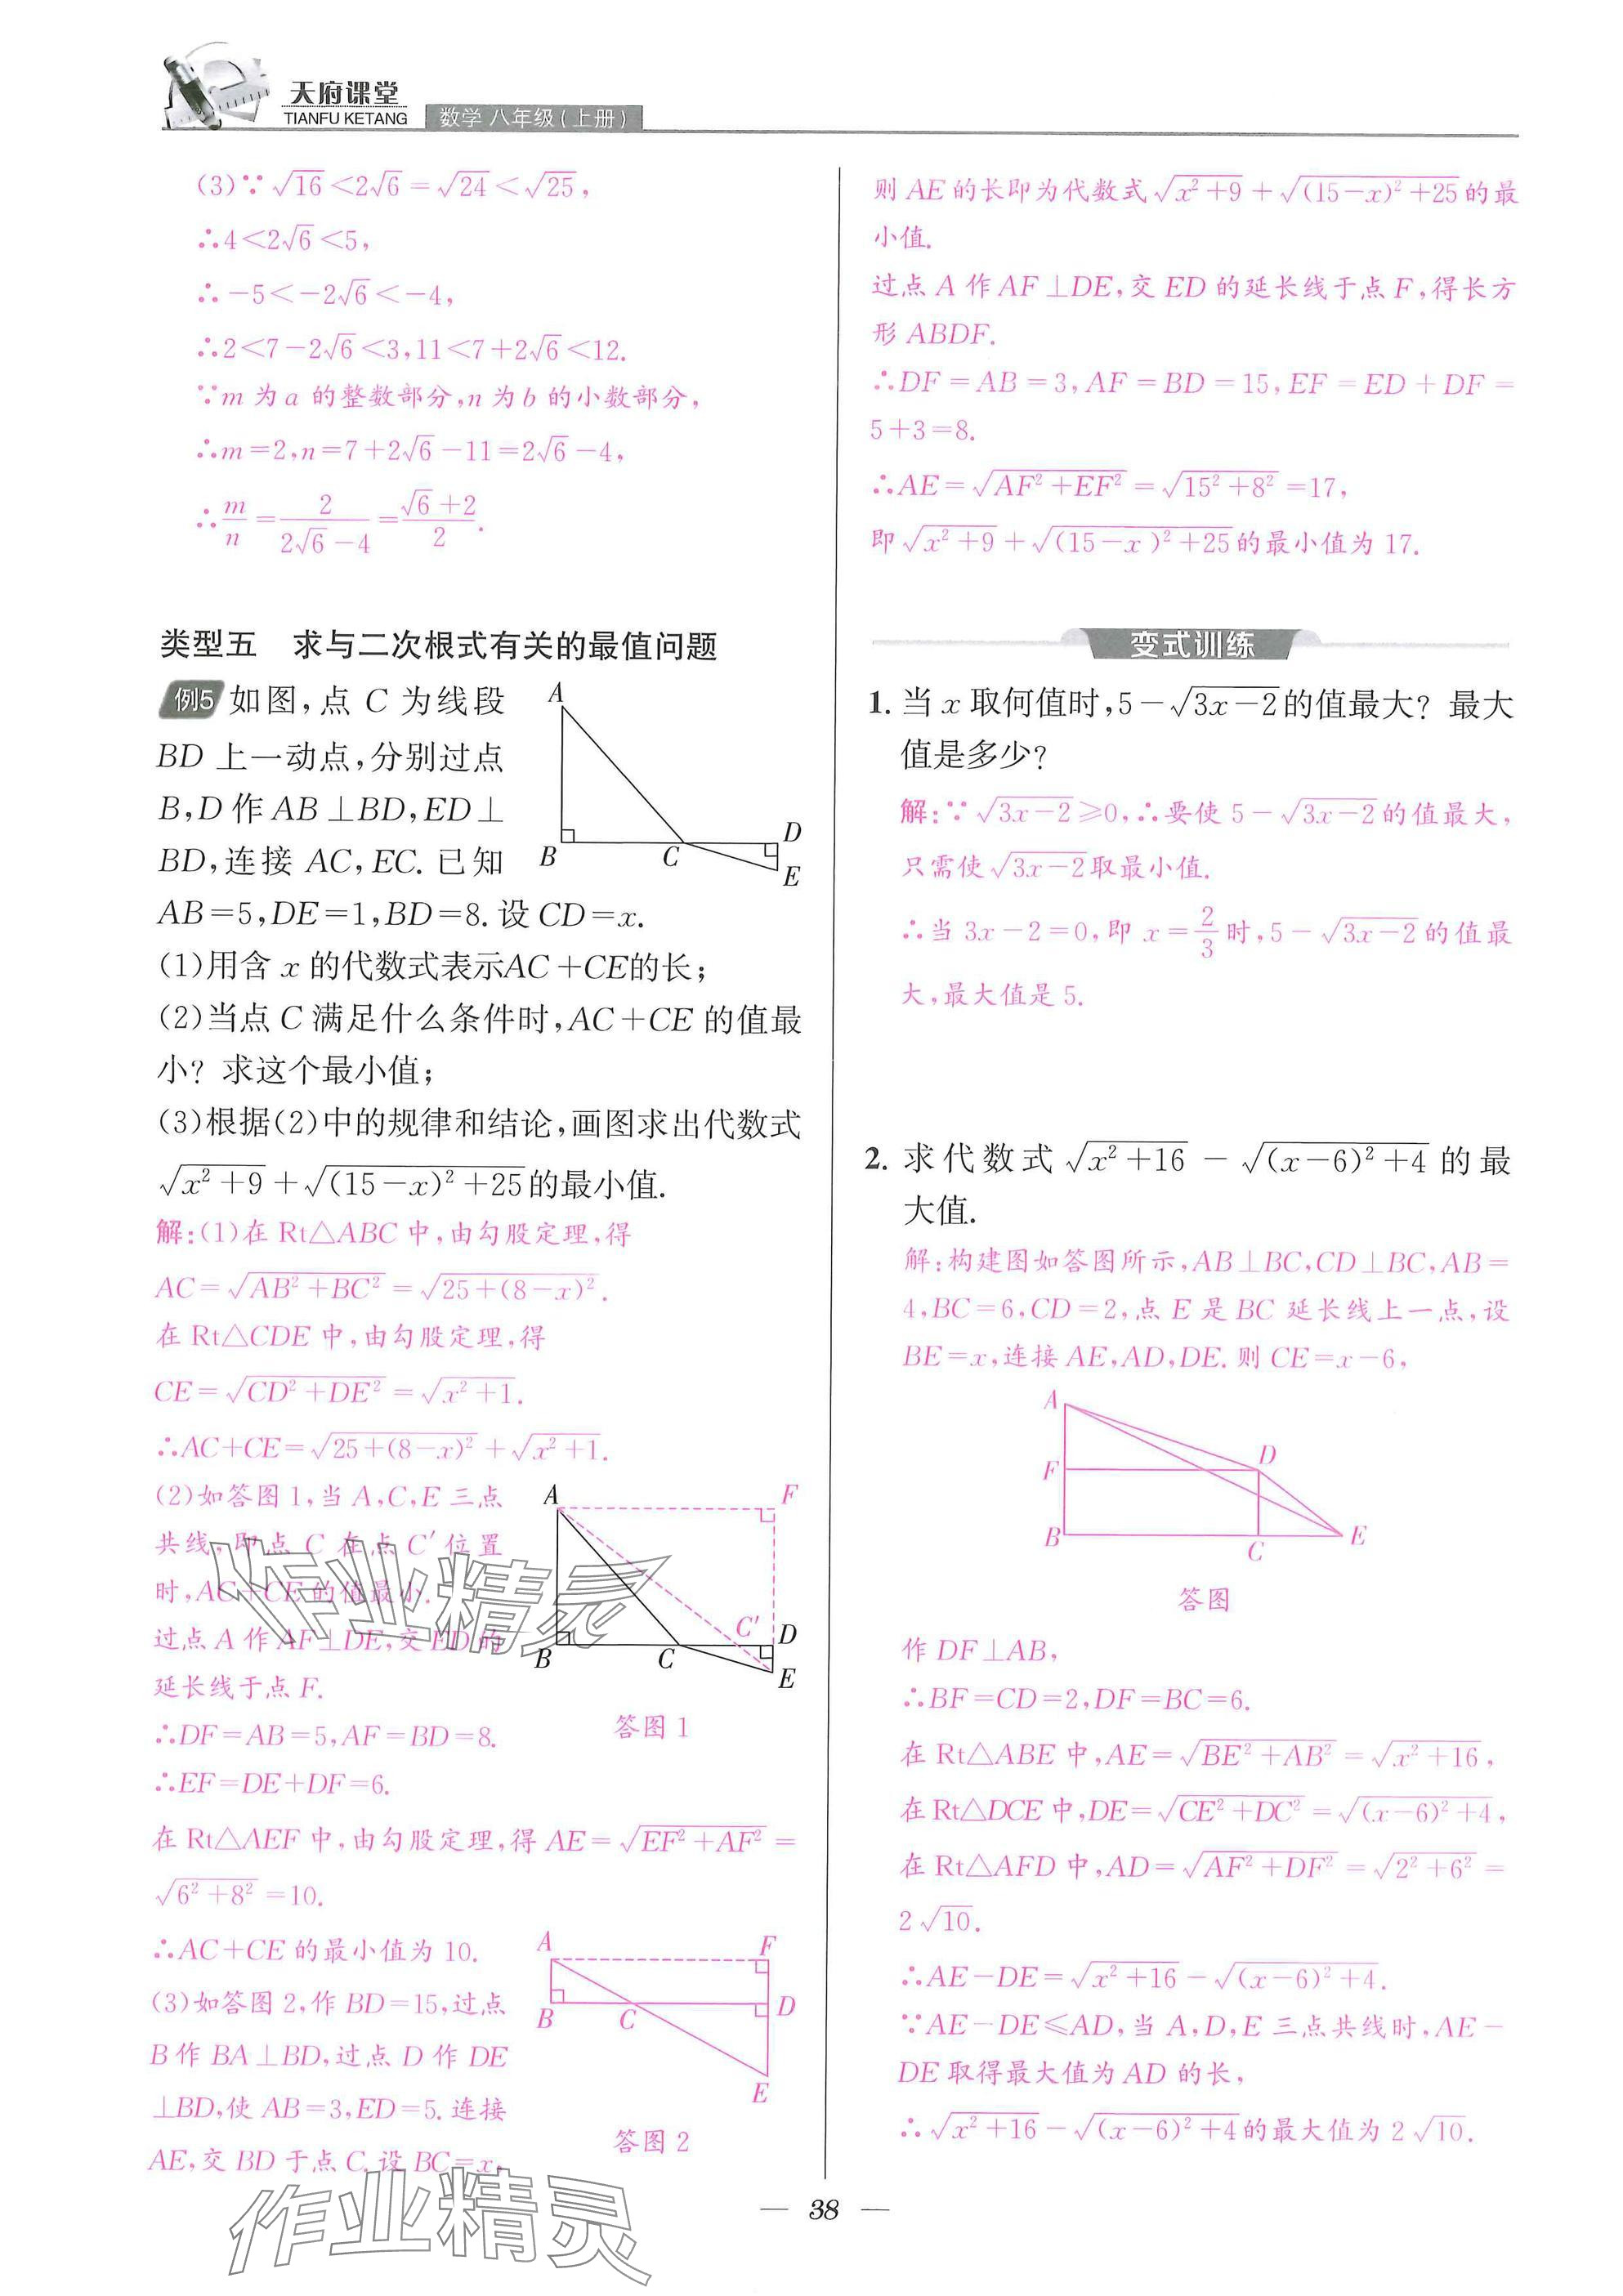 天府课堂
TIANFU KETANG
数学 八年级(上册)
(3)∵√16<2√6=√24<√25,
∴4<2√6<5,
∴-5<-2√6<-4,
∴2<7-2√6<3,11<7+2√6<12.
∵m为a的整数部分,n为b的小数部分,
∴m=2,n=7+2√6-11=2√6-4,
∴m/n=2/(2√6-4)=(√6+2)/2.
类型五 求与二次根式有关的最值问题
例5 如图,点C为线段
BD上一动点,分别过点
B,D作AB⊥BD,ED⊥
BD,连接AC,EC.已知
AB=5,DE=1,BD=8.设CD=x.
A
B
C
D
E
(1)用含x的代数式表示AC+CE的长;
(2)当点C满足什么条件时,AC+CE的值最
小?求这个最小值;
(3)根据(2)中的规律和结论,画图求出代数式
√(x²+9)+√((15-x)²+25)的最小值.
解:(1)在Rt△ABC中,由勾股定理,得
AC=√(AB²+BC²)=√(25+(8-x)²).
在Rt△CDE中,由勾股定理,得
CE=√(CD²+DE²)=√(x²+1).
∴AC+CE=√(25+(8-x)²)+√(x²+1).
(2)如答图1,当A,C,E三点
共线,即点C在点C′位置
时,AC+CE的值最小.
过点A作AF⊥DE,交ED的
延长线于点F.
A
F
C′
D
B
C
E
答图1
∴DF=AB=5,AF=BD=8.
∴EF=DE+DF=6.
在Rt△AEF中,由勾股定理,得AE=√(EF²+AF²)=
√(6²+8²)=10.
∴AC+CE的最小值为10.
(3)如答图2,作BD=15,过点
B作BA⊥BD,过点D作DE
⊥BD,使AB=3,ED=5.连接
AE,交BD于点C.设BC=x,
A
F
B
C
D
E
答图2
则AE的长即为代数式√(x²+9)+√((15-x)²+25)的最
小值.
过点A作AF⊥DE,交ED的延长线于点F,得长方
形ABDF.
∴DF=AB=3,AF=BD=15,EF=ED+DF=
5+3=8.
∴AE=√(AF²+EF²)=√(15²+8²)=17,
即√(x²+9)+√((15-x)²+25)的最小值为17.
变式训练
1.当x取何值时,5-√(3x-2)的值最大?最大
值是多少?
解:∵√(3x-2)≥0,∴要使5-√(3x-2)的值最大,
只需使√(3x-2)取最小值.
∴当3x-2=0,即x=2/3时,5-√(3x-2)的值最
大,最大值是5.
2.求代数式√(x²+16)-√((x-6)²+4)的最
大值.
解:构建图如答图所示,AB⊥BC,CD⊥BC,AB=
4,BC=6,CD=2,点E是BC延长线上一点,设
BE=x,连接AE,AD,DE.则CE=x-6,
A
D
F
B
C
E
答图
作DF⊥AB,
∴BF=CD=2,DF=BC=6.
在Rt△ABE中,AE=√(BE²+AB²)=√(x²+16),
在Rt△DCE中,DE=√(CE²+DC²)=√((x-6)²+4),
在Rt△AFD中,AD=√(AF²+DF²)=√(2²+6²)=
2√10.
∴AE-DE=√(x²+16)-√((x-6)²+4).
∵AE-DE≤AD,当A,D,E三点共线时,AE-
DE取得最大值为AD的长,
∴√(x²+16)-√((x-6)²+4)的最大值为2√10.
作业精灵
作业精灵
— 38 —